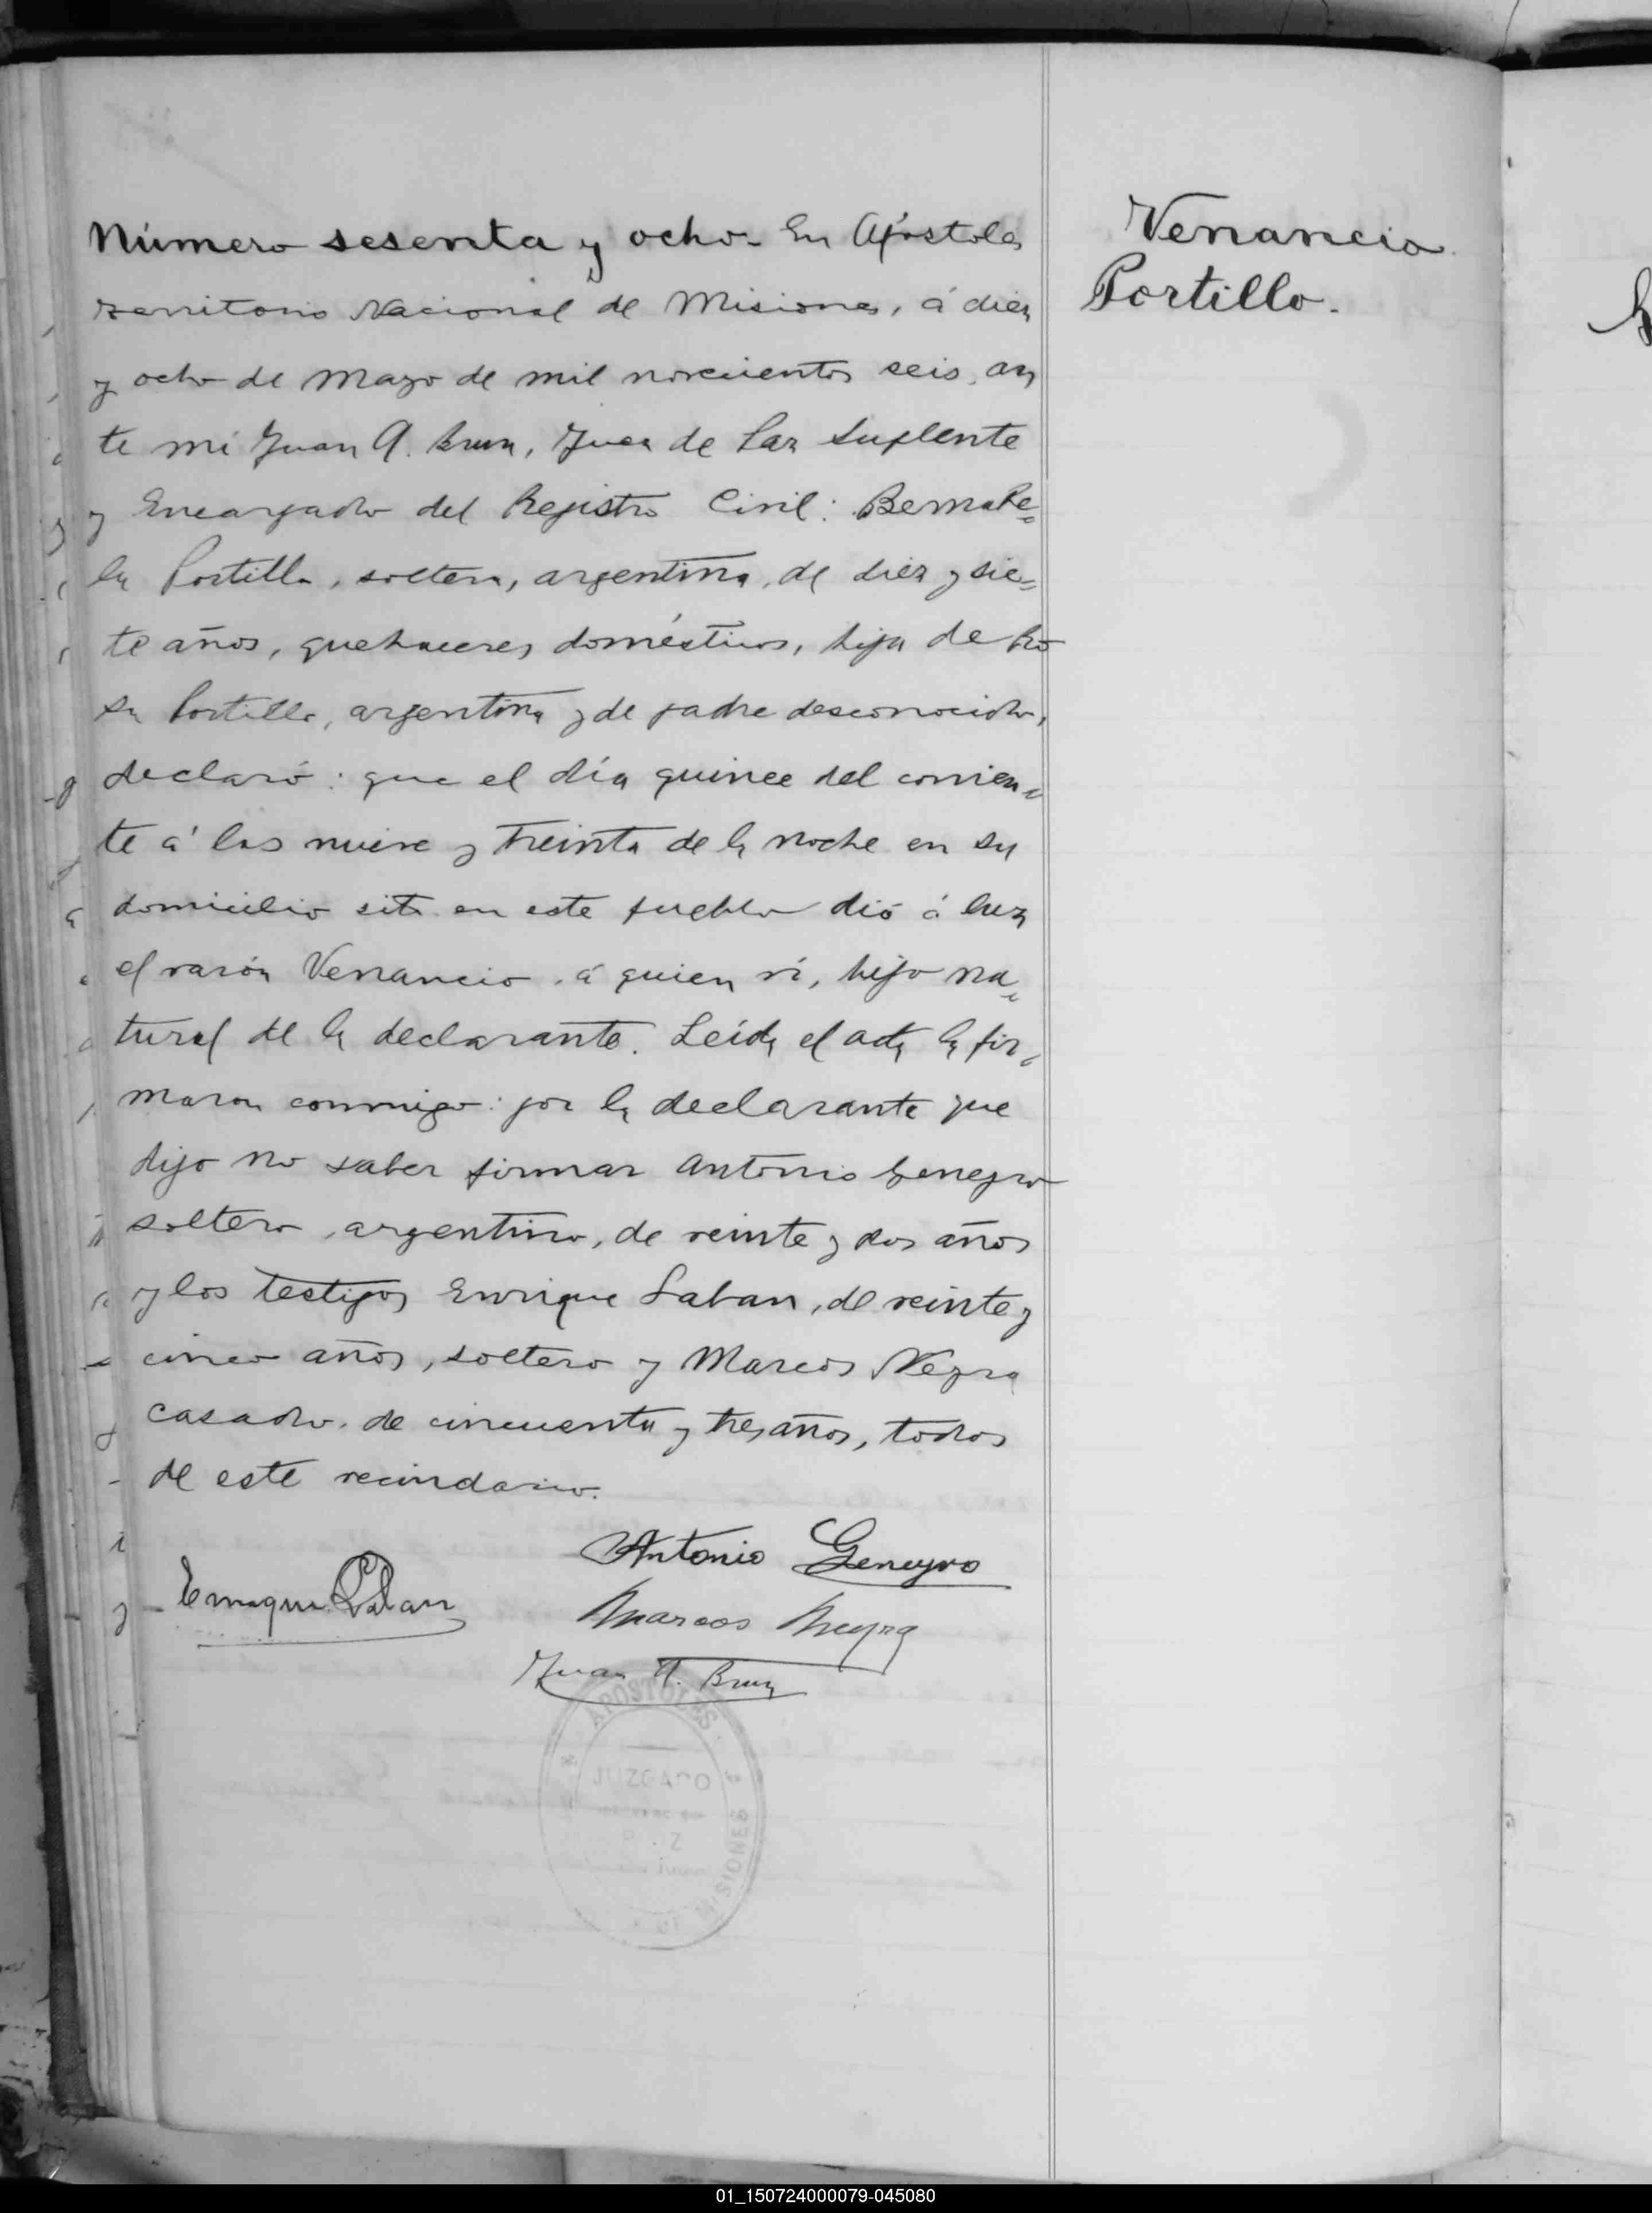 Número sesenta y ocho. En Apóstoles
Territorio Nacional de Misiones, á diez
y ocho de Mayo de mil novecientos seis, an
te mi Juan A. Brun, Juez de Paz Suplente
y Encargado del Registro Civil: Bernabe=
la Portillo, soltera, argentina, de diez y sie=
te años, quehaceres domésticos, hija de Ro
sa Portillo, argentina y de padre desconocido,
declaró: que el día quince del corrien=
te á las nueve y treinta de la noche en su
domicilio sito en este pueblo dió á luz
el varón Venancio, á quien ví, hijo na=
tural de la declarante. Leida el acta la fir=
maron conmigo: por la declarante que
dijo no saber firmar Antonio Geneyro
soltero, argentino, de veinte y dos años
y los testigos Enrique Laban, de veinte y
cinco años, soltero y Marcos Neyra
casado, de cincuenta y tres años, todos
de este vecindario.
Antonio Geneyro
Enrique Laban
Marcos Neyra
Juan A. Brun
APOSTOLES
JUZGADO
MISIONES
Venancio
Portillo.
01_150724000079-045080